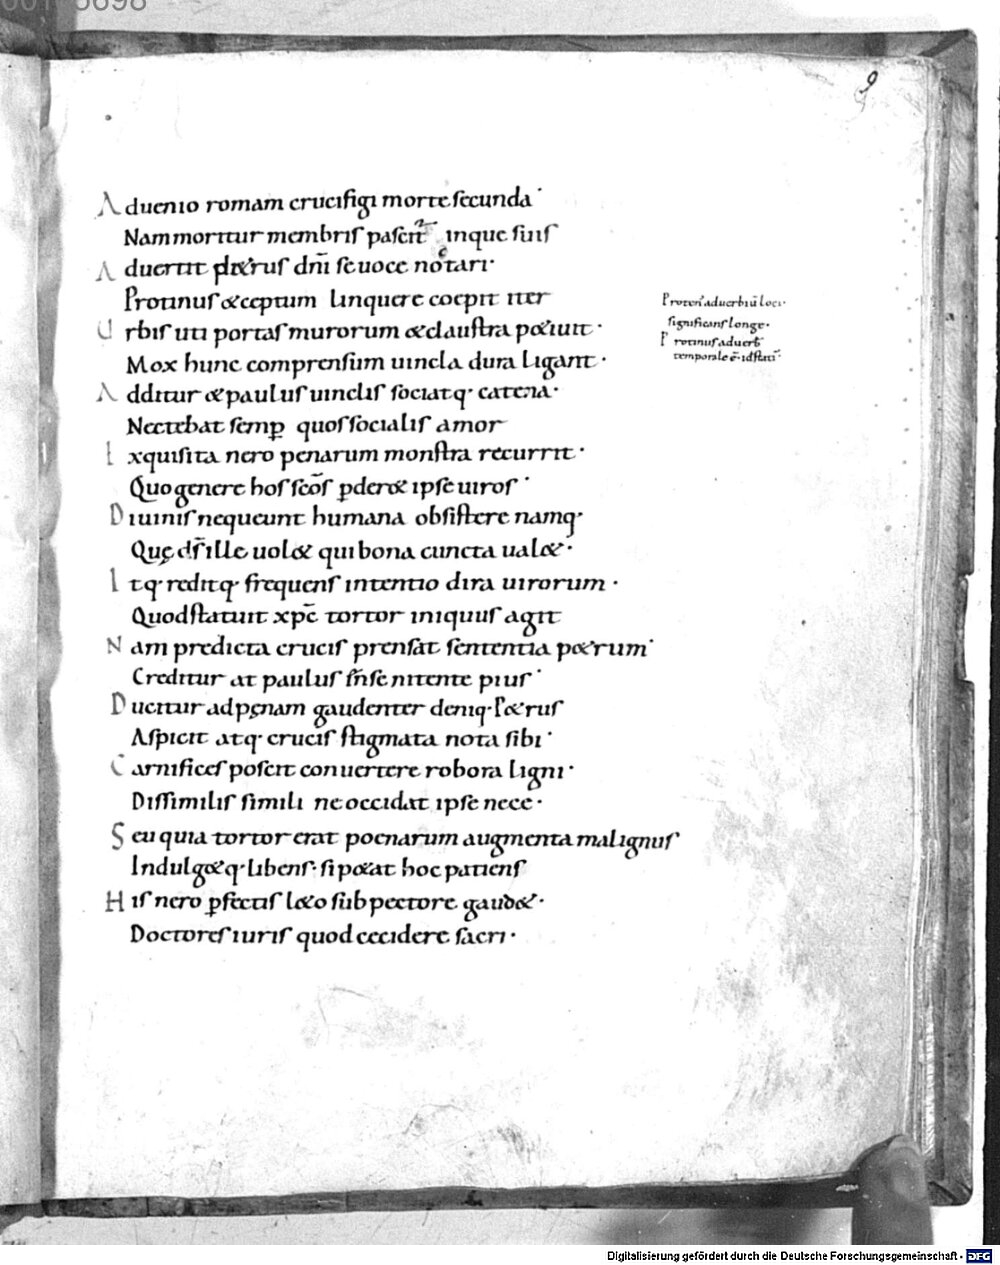 00105698
9
Aduenio romam crucifigi morte secunda
Nam moritur membris pascit᷑ inque suis
Aduertit petrus dn̄i se uoce notari
Protinus & ceptum linquere coepit iter
Urbis uti portas murorum & claustra p&iuit
Mox hunc comprensum uincla dura ligant
Additur & paulus uinclis sociatq· catena
Nectebat semꝑ quos socialis amor
Exquisita nero penarum monstra recurrit
Quo genere hos sc̄os ꝑder& ipse uiros
Diuinis nequeunt humana obsistere namq·
Quę ds̄ ille uol& qui bona cuncta ual&
Itq· reditq· frequens intentio dira uirorum
Quod statuit xp̄c tortor iniquus agit
Nam predicta crucis prensat sententia p&rum
Creditur at paulus se nitente pius
Ducitur ad pęnam gaudenter deniq· P&rus
Aspicit atq· crucis stigmata nota sibi
Carnifices poscit conuertere robora ligni
Dissimilis simili ne occidat ipse nece
Seu quia tortor erat poenarum augmenta malignus
Indulg&q· libens· si p&at hoc patiens
His nero ꝑfectis l&o sub pectore gaud&
Doctores iuris quod cecidere sacri
Proten᷑ aduerbiū loci
significans longe·
Protinus aduerb̄
temporale ē· id stati᷑
Digitalisierung gefördert durch die Deutsche Forschungsgemeinschaft - DFG